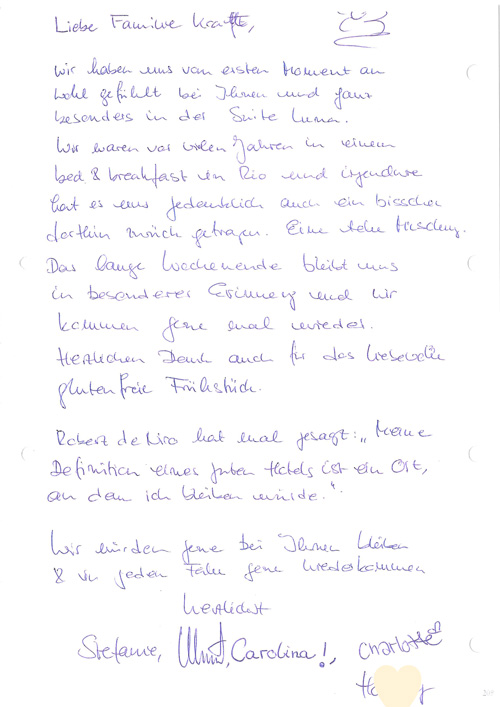 Liebe Familie Krafft,
wir haben uns vom ersten Moment an
wohl gefühlt bei Ihnen und ganz
besonders in der Suite Luna.
Wir waren vor vielen Jahren in einem
bed & breakfast in Rio und irgendwie
hat es uns gedanklich auch ein bisschen
dorthin zurück getragen. Eine tolle Mischung.
Das lange Wochenende bleibt uns
in besonderer Erinnerung und wir
kommen gerne mal wieder.
Herzlichen Dank auch für das liebevolle
glutenfreie Frühstück.
Robert de Niro hat mal gesagt: „Meine
Definition eines guten Hotels ist ein Ort,
an dem ich bleiben würde."
Wir würden gerne bei Ihnen bleiben
& in jedem Falle gerne wiederkommen
Herzlichst
Stefanie, Carolina!, Charlotte